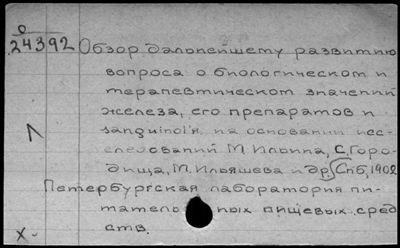 24392 Обзор дальнейшему развитию
вопроса о биологическом и
терапевтическом значении
железа, его препаратов и
sanguinol'я, на основании исс-
следований М. Ильина, С. Горо-
дища, М. Ильяшева и др. Спб, 1902
Петербургская лаборатория пи-
тательных пищевых сред
ств.
X-